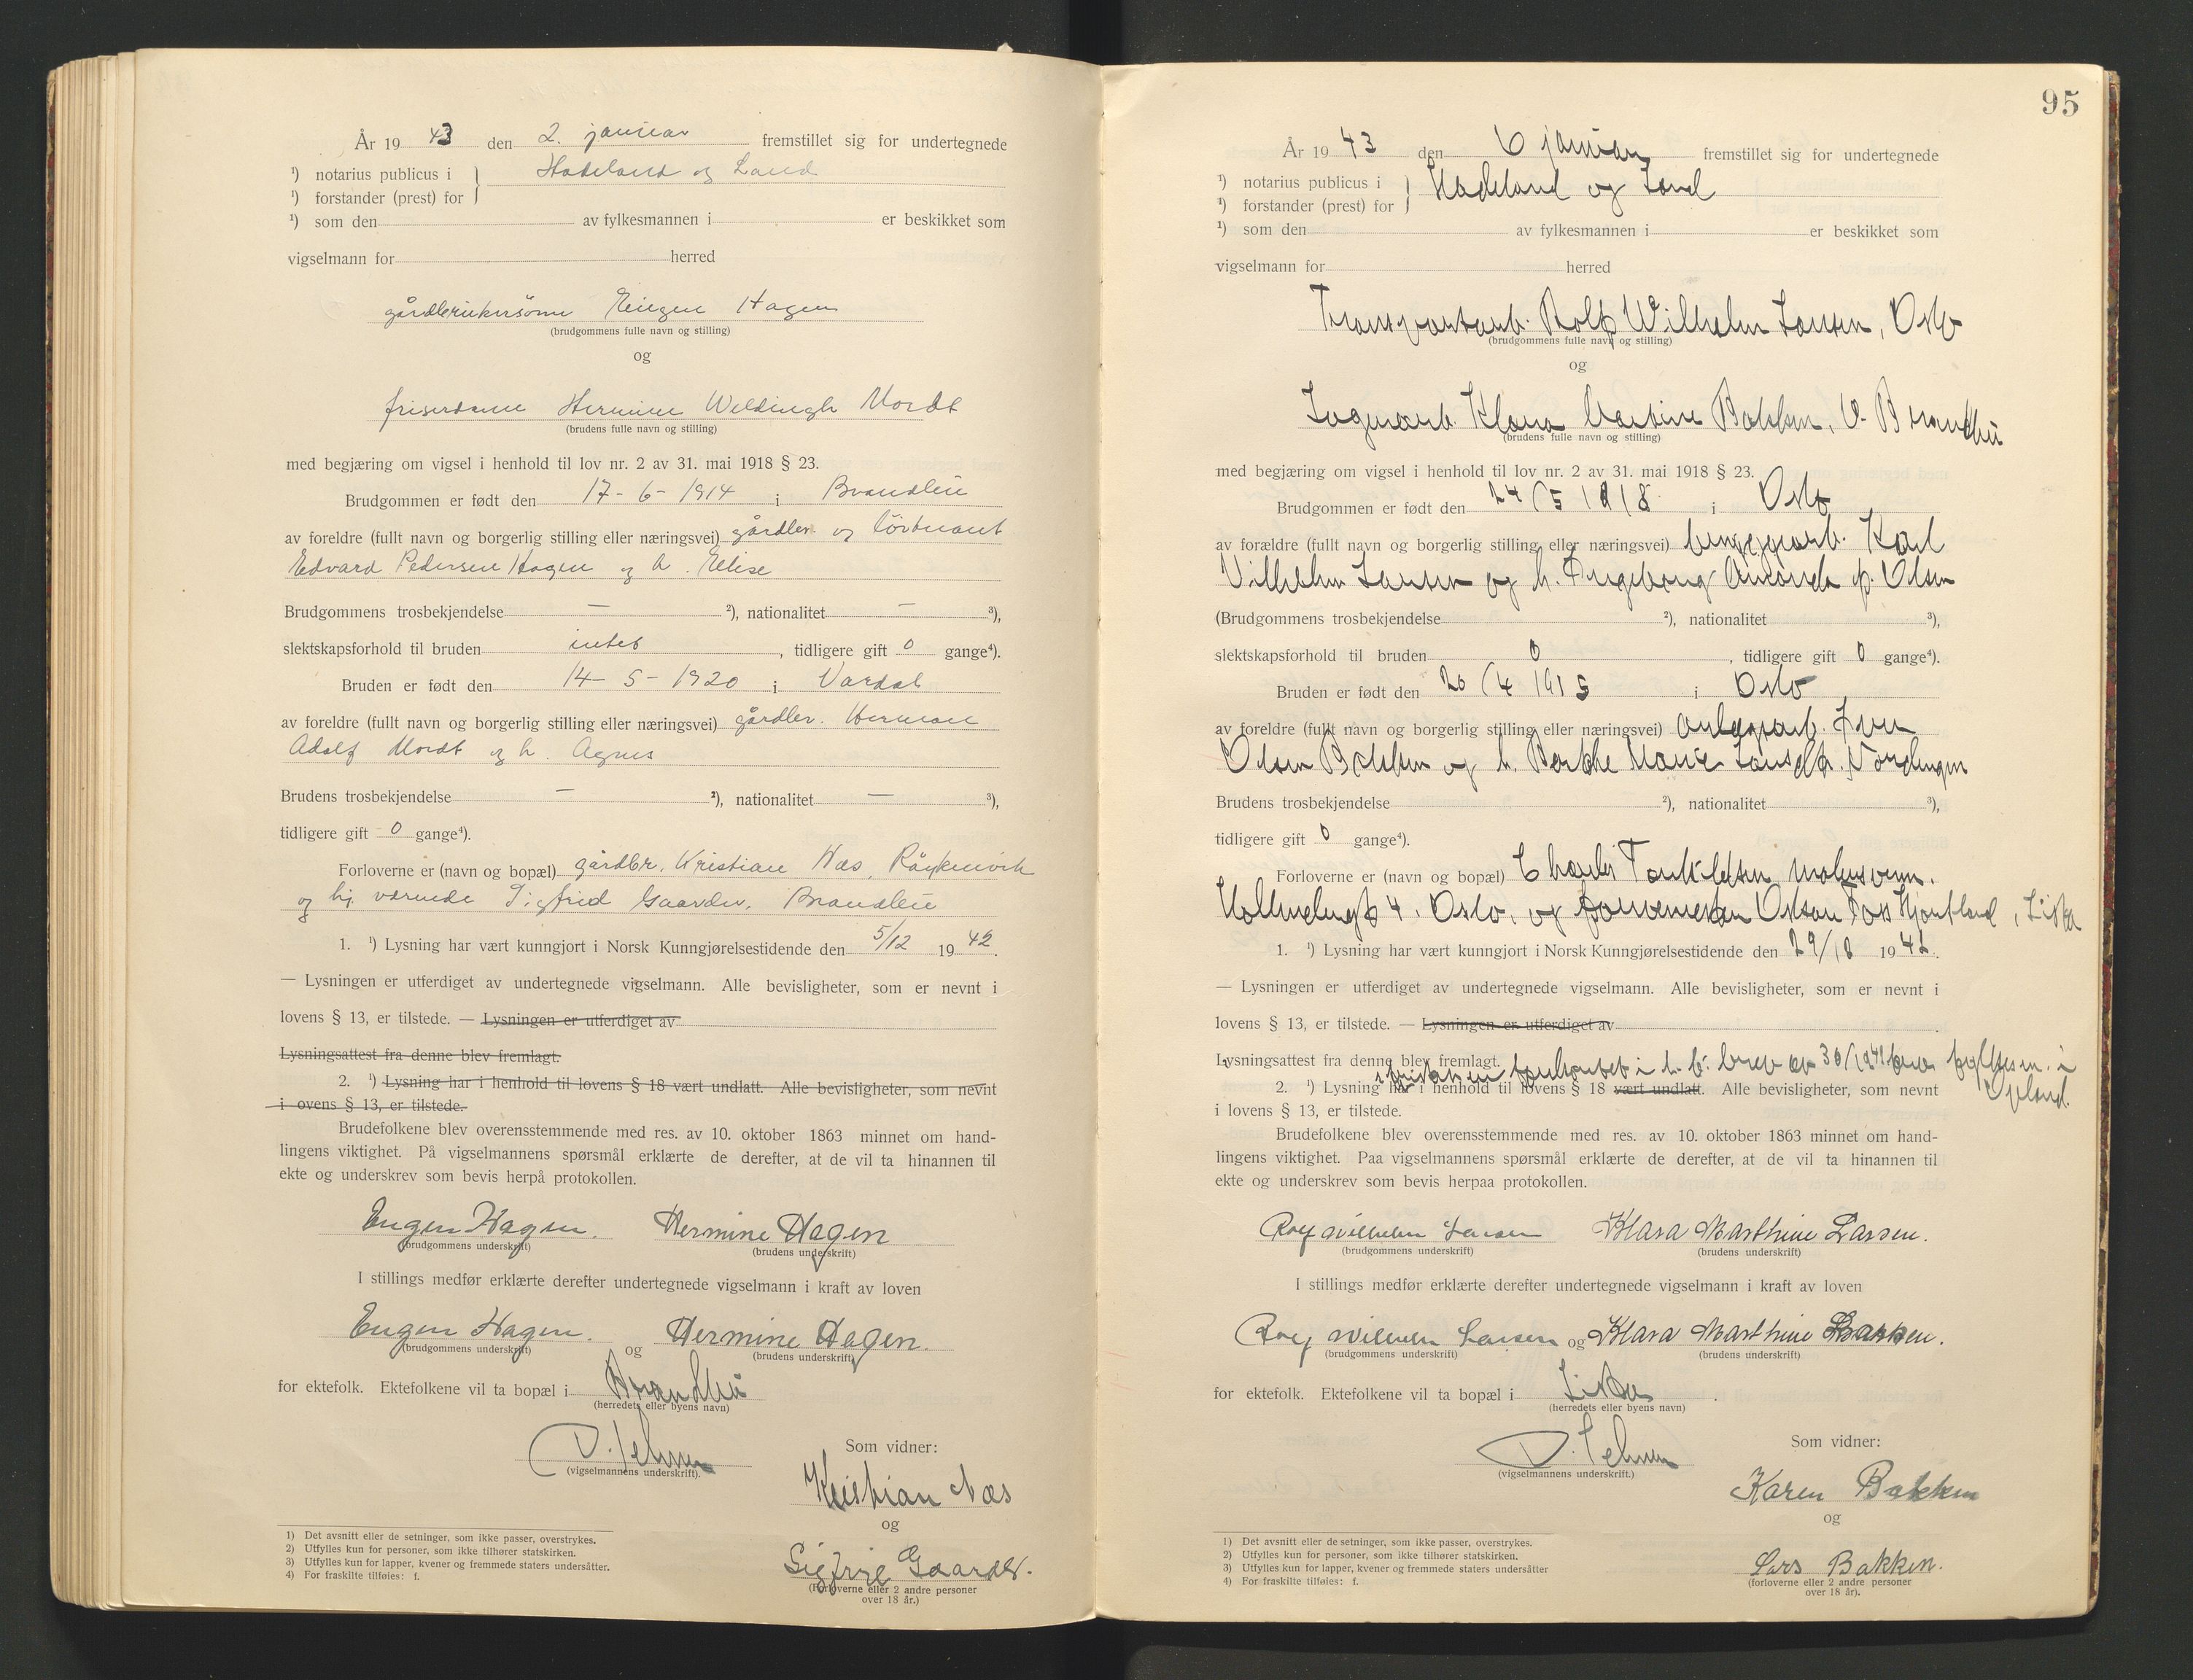 År 19 43 den 2. januar fremstillet sig for undertegnede
¹) notarius publicus i } Hadeland og Land
¹) forstander (prest) for
¹) som den av fylkesmannen i er beskikket som
vigselmann for herred
gårdbrukersønn Eugen Hagen
(brudgommens fulle navn og stilling)
og
friserdame Hermine Weldingh Mordt
(brudens fulle navn og stilling)
med begjæring om vigsel i henhold til lov nr. 2 av 31. mai 1918 § 23.
Brudgommen er født den 17-6-1914 i Brandbu
av foreldre (fullt navn og borgerlig stilling eller næringsvei) gårdbr. og løitnant
Edvard Pedersen Hagen og h. Elise
Brudgommens trosbekjendelse — ²), nationalitet — ³),
slektskapsforhold til bruden intet , tidligere gift 0 gange⁴).
Bruden er født den 14-5-1920 i Vardal
av foreldre (fullt navn og borgerlig stilling eller næringsvei) gårdbr. Herman
Adolf Mordt og h. Agnes
Brudens trosbekjendelse — ²), nationalitet — ³),
tidligere gift 0 gange⁴).
Forloverne er (navn og bopæl) gårdbr. Kristian Næs, Røykenvik
og hj. værende Sigfrid Gaarder, Brandbu
1. ¹) Lysning har vært kunngjort i Norsk Kunngjørelsestidende den 5/12 19 42.
— Lysningen er utferdiget av undertegnede vigselmann. Alle bevisligheter, som er nevnt i
lovens § 13, er tilstede. — Lysningen er utferdiget av
Lysningsattest fra denne blev fremlagt.
2. ¹) Lysning har i henhold til lovens § 18 vært undlatt. Alle bevisligheter, som nevnt
i ovens § 13, er tilstede.
Brudefolkene blev overensstemmende med res. av 10. oktober 1863 minnet om hand-
lingens viktighet. På vigselmannens spørsmål erklærte de derefter, at de vil ta hinannen til
ekte og underskrev som bevis herpå protokollen.
Eugen Hagen. Hermine Hagen
(brudgommens underskrift) (brudens underskrift)
I stillings medfør erklærte derefter undertegnede vigselmann i kraft av loven
Eugen Hagen. og Hermine Hagen.
(brudgommens underskrift) (brudens underskrift)
for ektefolk. Ektefolkene vil ta bopæl i Brandbu
(herredets eller byens navn)
(vigselmannens underskrift).
Som vidner:
Kristian Næs
og
Sigfrid Gaarder.
(Forloverne eller 2 andre personer
over 18 år.)
1) Det avsnitt eller de setninger, som ikke passer, overstrykes.
2) Utfylles kun for personer, som ikke tilhører statskirken.
3) Utfylles kun for lapper, kvener og fremmede staters undersåtter.
4) For fraskilte tilføies: f.
95
År 19 43 den 6 januar fremstillet sig for undertegnede
¹) notarius publicus i } Hadeland og Land
¹) forstander (prest) for
¹) som den av fylkesmannen i er beskikket som
vigselmann for herred
Transportarb. Rolf Wilhelm Larsen, Oslo
(brudgommens fulle navn og stilling)
og
Klara Martine Bakken, V. Brandbu
(brudens fulle navn og stilling)
med begjæring om vigsel i henhold til lov nr. 2 av 31. mai 1918 § 23.
Brudgommen er født den 24/5 1918 i Oslo
av forældre (fullt navn og borgerlig stilling eller næringsvei) bryggearb. Karl
Vilhelm Larsen og h. Ingeborg Amanda f. Olsen
(Brudgommens trosbekjendelse ²), nationalitet ³),
slektskapsforhold til bruden 0 , tidligere gift 0 gange⁴).
Bruden er født den 20/4 1915 i Oslo
av foreldre (fullt navn og borgerlig stilling eller næringsvei) anleggsarb. Iver
Olsen Bakken og h. Berthe Marie
Brudens trosbekjendelse ²), nationalitet ³),
tidligere gift 0 gange⁴).
Forloverne er (navn og bopæl) Charles Torkildsen malersvenn.
4, Oslo, og
1. ¹) Lysning har vært kunngjort i Norsk Kunngjørelsestidende den 29/18 19 42.
— Lysningen er utferdiget av undertegnede vigselmann. Alle bevisligheter, som er nevnt i
lovens § 13, er tilstede. — Lysningen er utferdiget av
Lysningsattest fra denne blev fremlagt. brev av
i Opland.
2. ¹) Lysning har i henhold til lovens § 18 vært undlatt. Alle bevisligheter, som nevnt
i lovens § 13, er tilstede.
Brudefolkene blev overensstemmende med res. av 10. oktober 1863 minnet om hand-
lingens viktighet. Paa vigselmannens spørsmål erklærte de derefter, at de vil ta hinannen til
ekte og underskrev som bevis herpaa protokollen.
Rolf Wilhelm Larsen Klara Marthine Larsen.
(brudgommens underskrift) (brudens underskrift)
I stillings medfør erklærte derefter undertegnede vigselmann i kraft av loven
Rolf Wilhelm Larsen og Klara Marthine
(brudgommens underskrift) (brudens underskrift)
for ektefolk. Ektefolkene vil ta bopæl i
(herredets eller byens navn)
(vigselmannens underskrift.)
Som vidner:
Karen Bakken
og
Lars Bakken.
(forloverne eller 2 andre personer
over 18 år).
1) Det avsnitt eller de setninger, som ikke passer, overstrykes.
2) Utfylles kun for personer, som ikke tilhører statskirken.
3) Utfylles kun for lapper, kvener og fremmede staters undersåtter
4) For fraskilte tilføies: f.